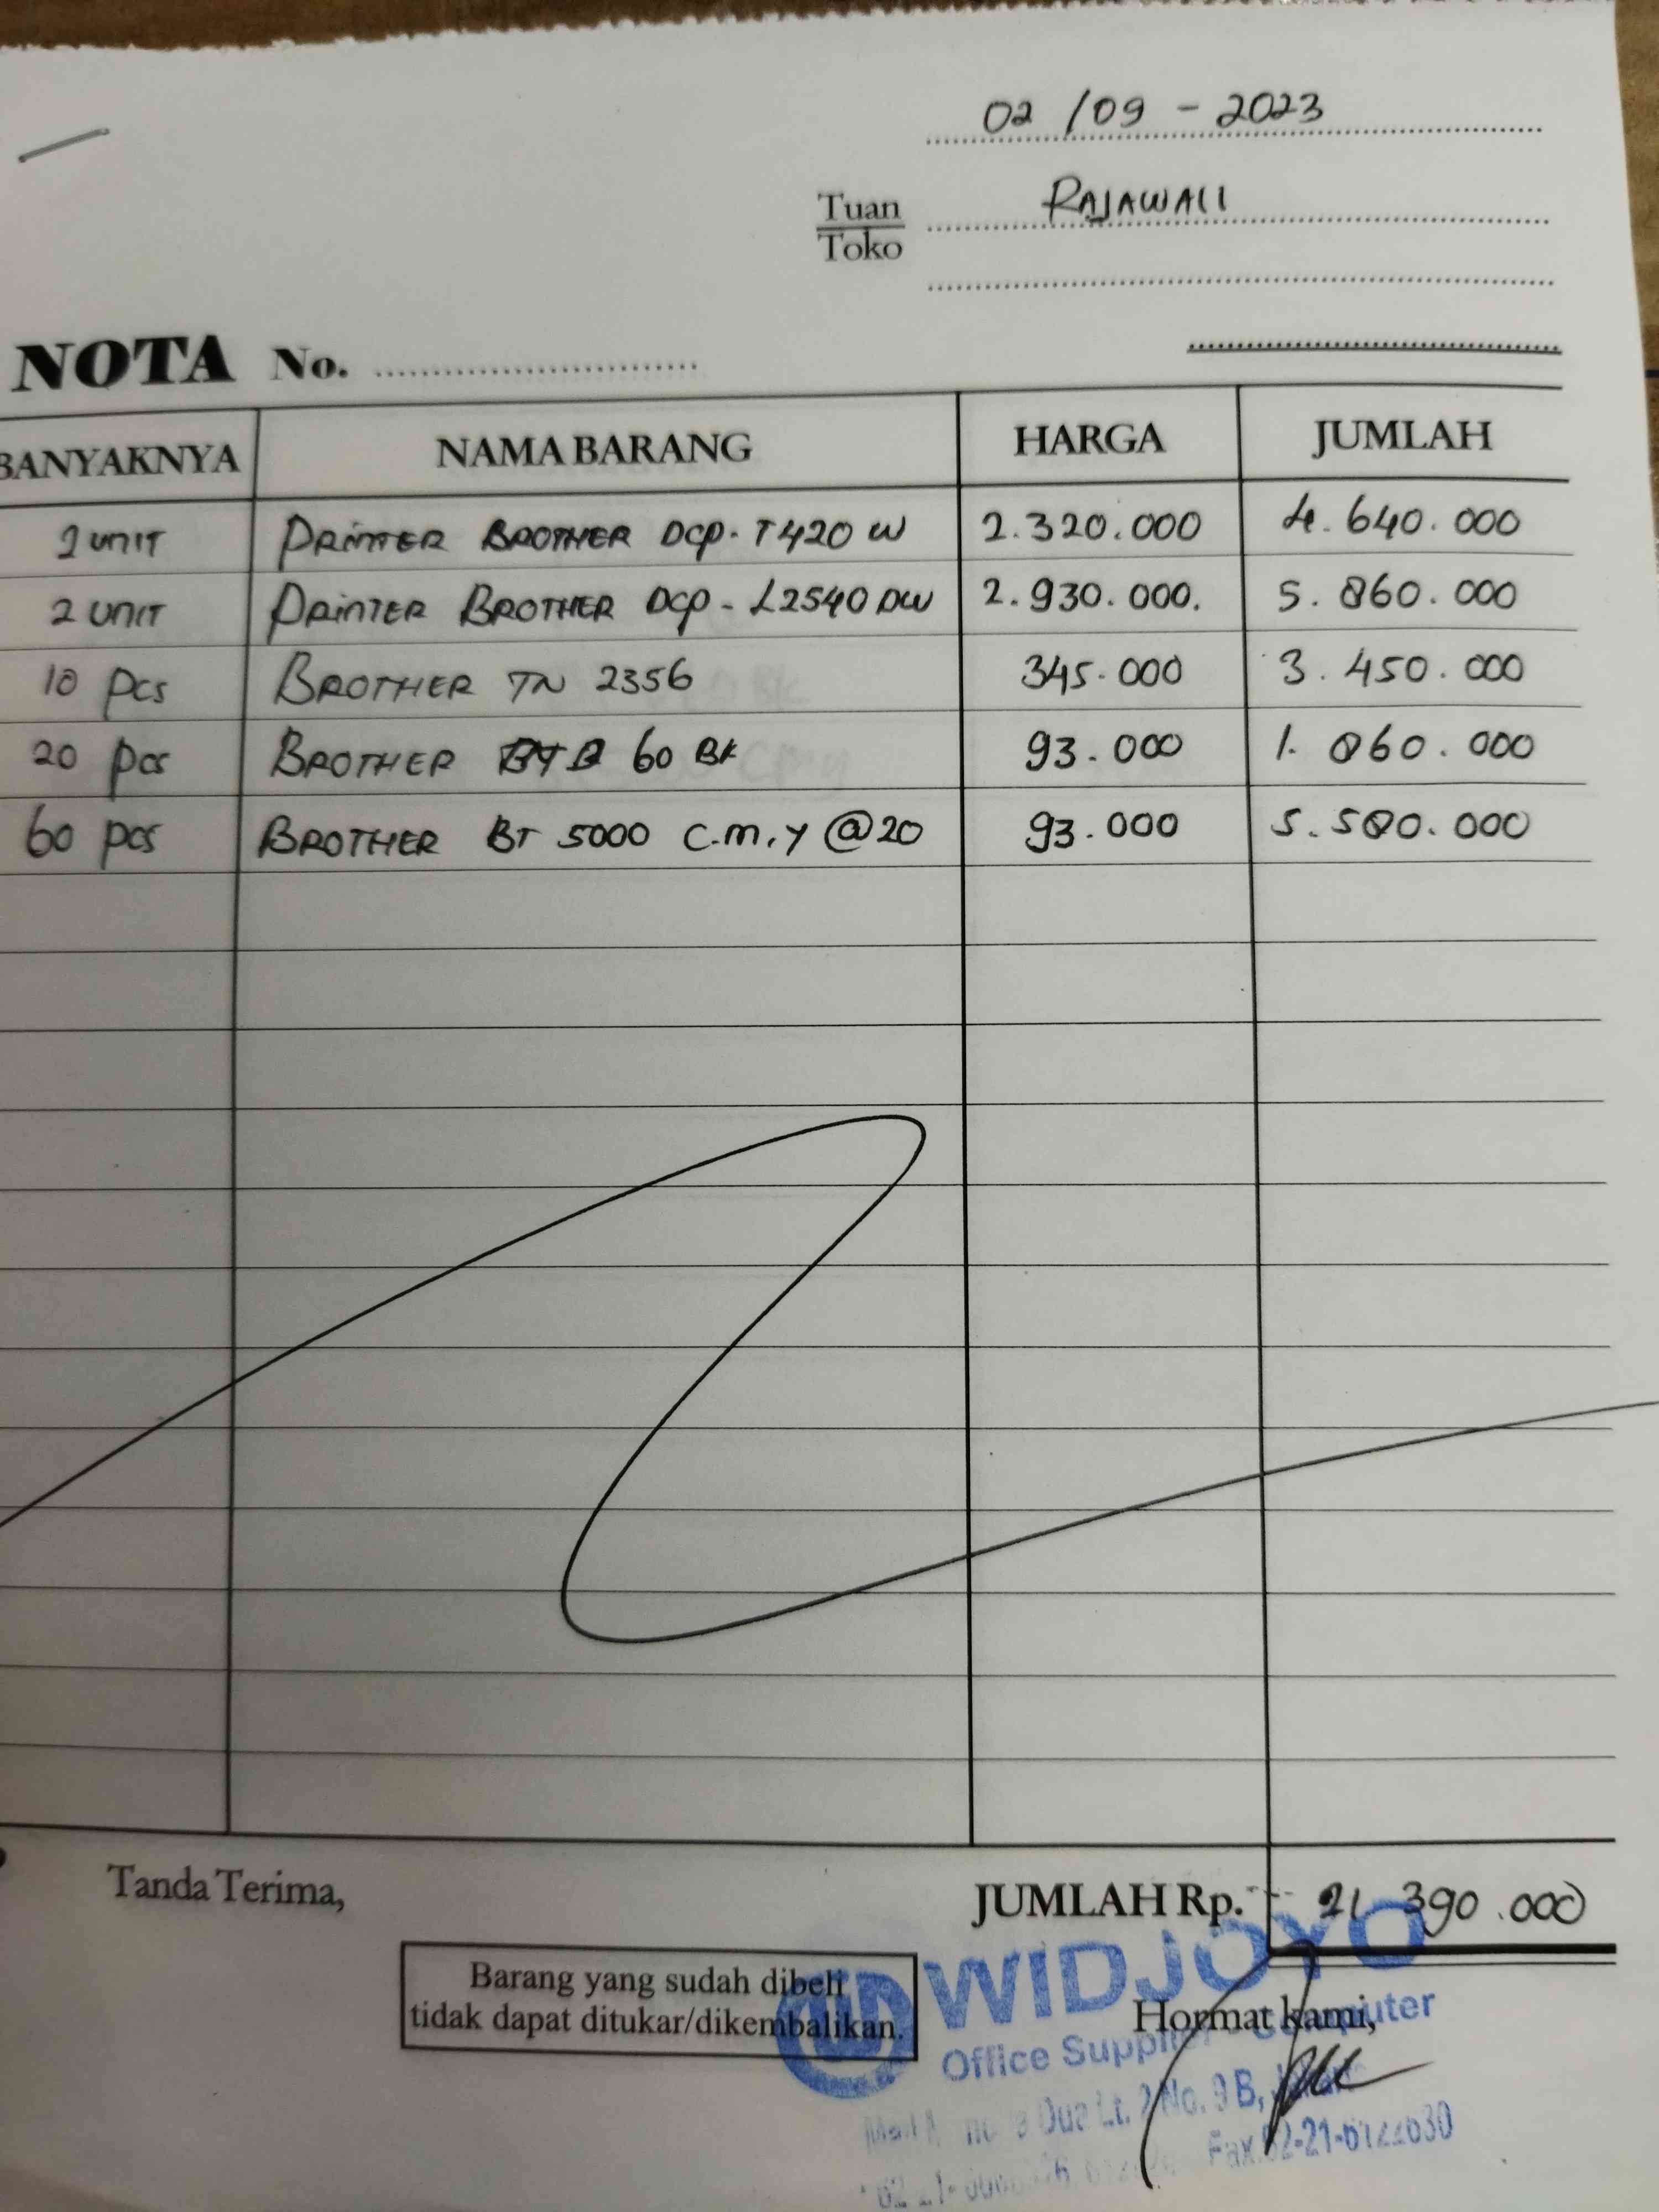 02 /09 - 2023
Tuan RAJAWALI
Toko
NOTA No.
BANYAKNYA NAMA BARANG HARGA JUMLAH
2 UNIT PRINTER BROTHER DCP- T420 W 2.320.000 4.640.000
2 UNIT PRINTER BROTHER DCP - L2540 DW 2.930.000. 5.860.000
10 pcs BROTHER TN 2356 345.000 3.450.000
20 pcs BROTHER 60 BK 93.000 1.860.000
60 pcs BROTHER BT 5000 C.M.Y @20 93.000 5.580.000
Tanda Terima, JUMLAH Rp. 21.390.000
Barang yang sudah dibeli
tidak dapat ditukar/dikembalikan.
WIDJOYO
Hormat kami,
Office Computer
Dua Lt. 2 No. 9 B,
Fax